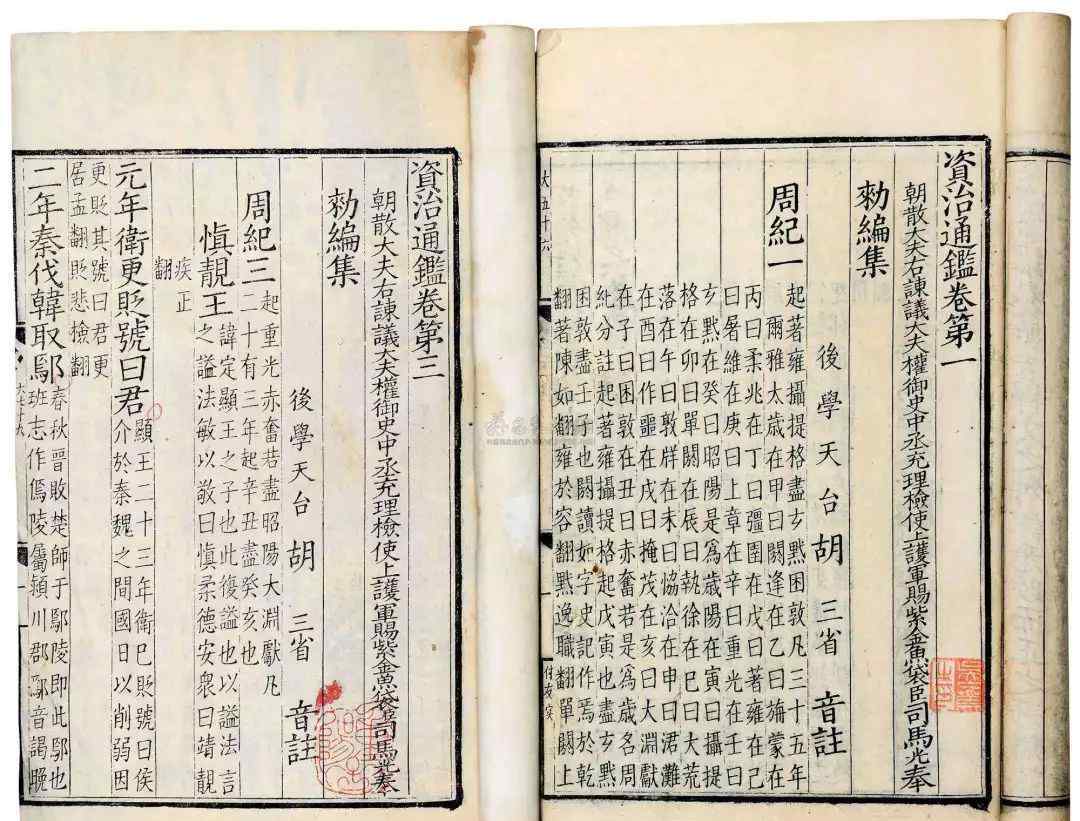 資治通鑑卷第一
朝散大夫右諫議大夫權御史中丞充理檢使上護軍賜紫金魚袋臣司馬光奉
勑編集
後學天台胡三省音註
周紀一
起著雍攝提格盡玄黓困敦凡三十五年
爾雅太歲在甲曰閼逢在乙曰旃蒙在
丙曰柔兆在丁曰彊圉在戊曰著雍在己
曰屠維在庚曰上章在辛曰重光在壬曰
玄黓在癸曰昭陽是爲歲陽在寅曰攝提
格在卯曰單閼在辰曰執徐在巳曰大荒
落在午曰敦牂在未曰協洽在申曰涒灘
在酉曰作噩在戌曰掩茂在亥曰大淵獻
在子曰困敦在丑曰赤奮若是爲歲名周
紀分註起著雍攝提格起戊寅也盡玄黓
困敦盡壬子也閼讀如字史記作焉於乾
翻著陳如翻雍於容翻黓逸職翻單閼上
大五十六
資治通鑑卷第三
朝散大夫右諫議大夫權御史中丞充理檢使上護軍賜紫金魚袋臣司馬光奉
勑編集
後學天台胡三省音註
周紀三
起重光赤奮若盡昭陽大淵獻凡
二十有三年起辛丑盡癸亥也
慎靚王
諱定顯王之子也此復謚也以謚法言
之謚法敏以敬曰慎柔德安衆曰靖靚
疾正
翻
元年衛更貶號曰君
顯王二十三年衛巳貶號曰侯
介於秦魏之間國日以削弱因
更貶其號曰君更
居孟翻貶悲檢翻
二年秦伐韓取鄢
春秋晉敗楚師于鄢陵即此鄢也
班志作傿陵屬潁川郡鄢音謁晚